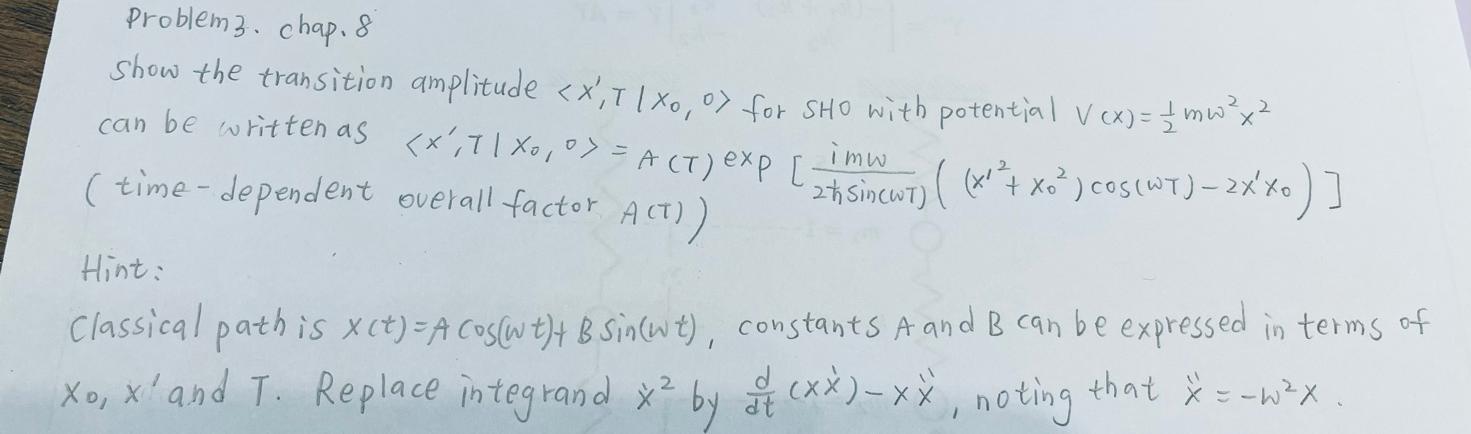 Problem 3. chap. 8
Show the transition amplitude <x',T|x₀,0> for SHO with potential V(x)=½mw²x²
can be written as <x',T|x₀,0> = A(T) exp [imw/2ħsin(wT) ((x'²+x₀²)cos(wT)-2x'x₀)]
(time-dependent overall factor A(T))
Hint:
Classical path is x(t)=A cos(wt)+B sin(wt), constants A and B can be expressed in terms of
x₀, x' and T. Replace integrand ẋ² by d/dt (xẋ)-xẍ, noting that ẍ=-w²x.